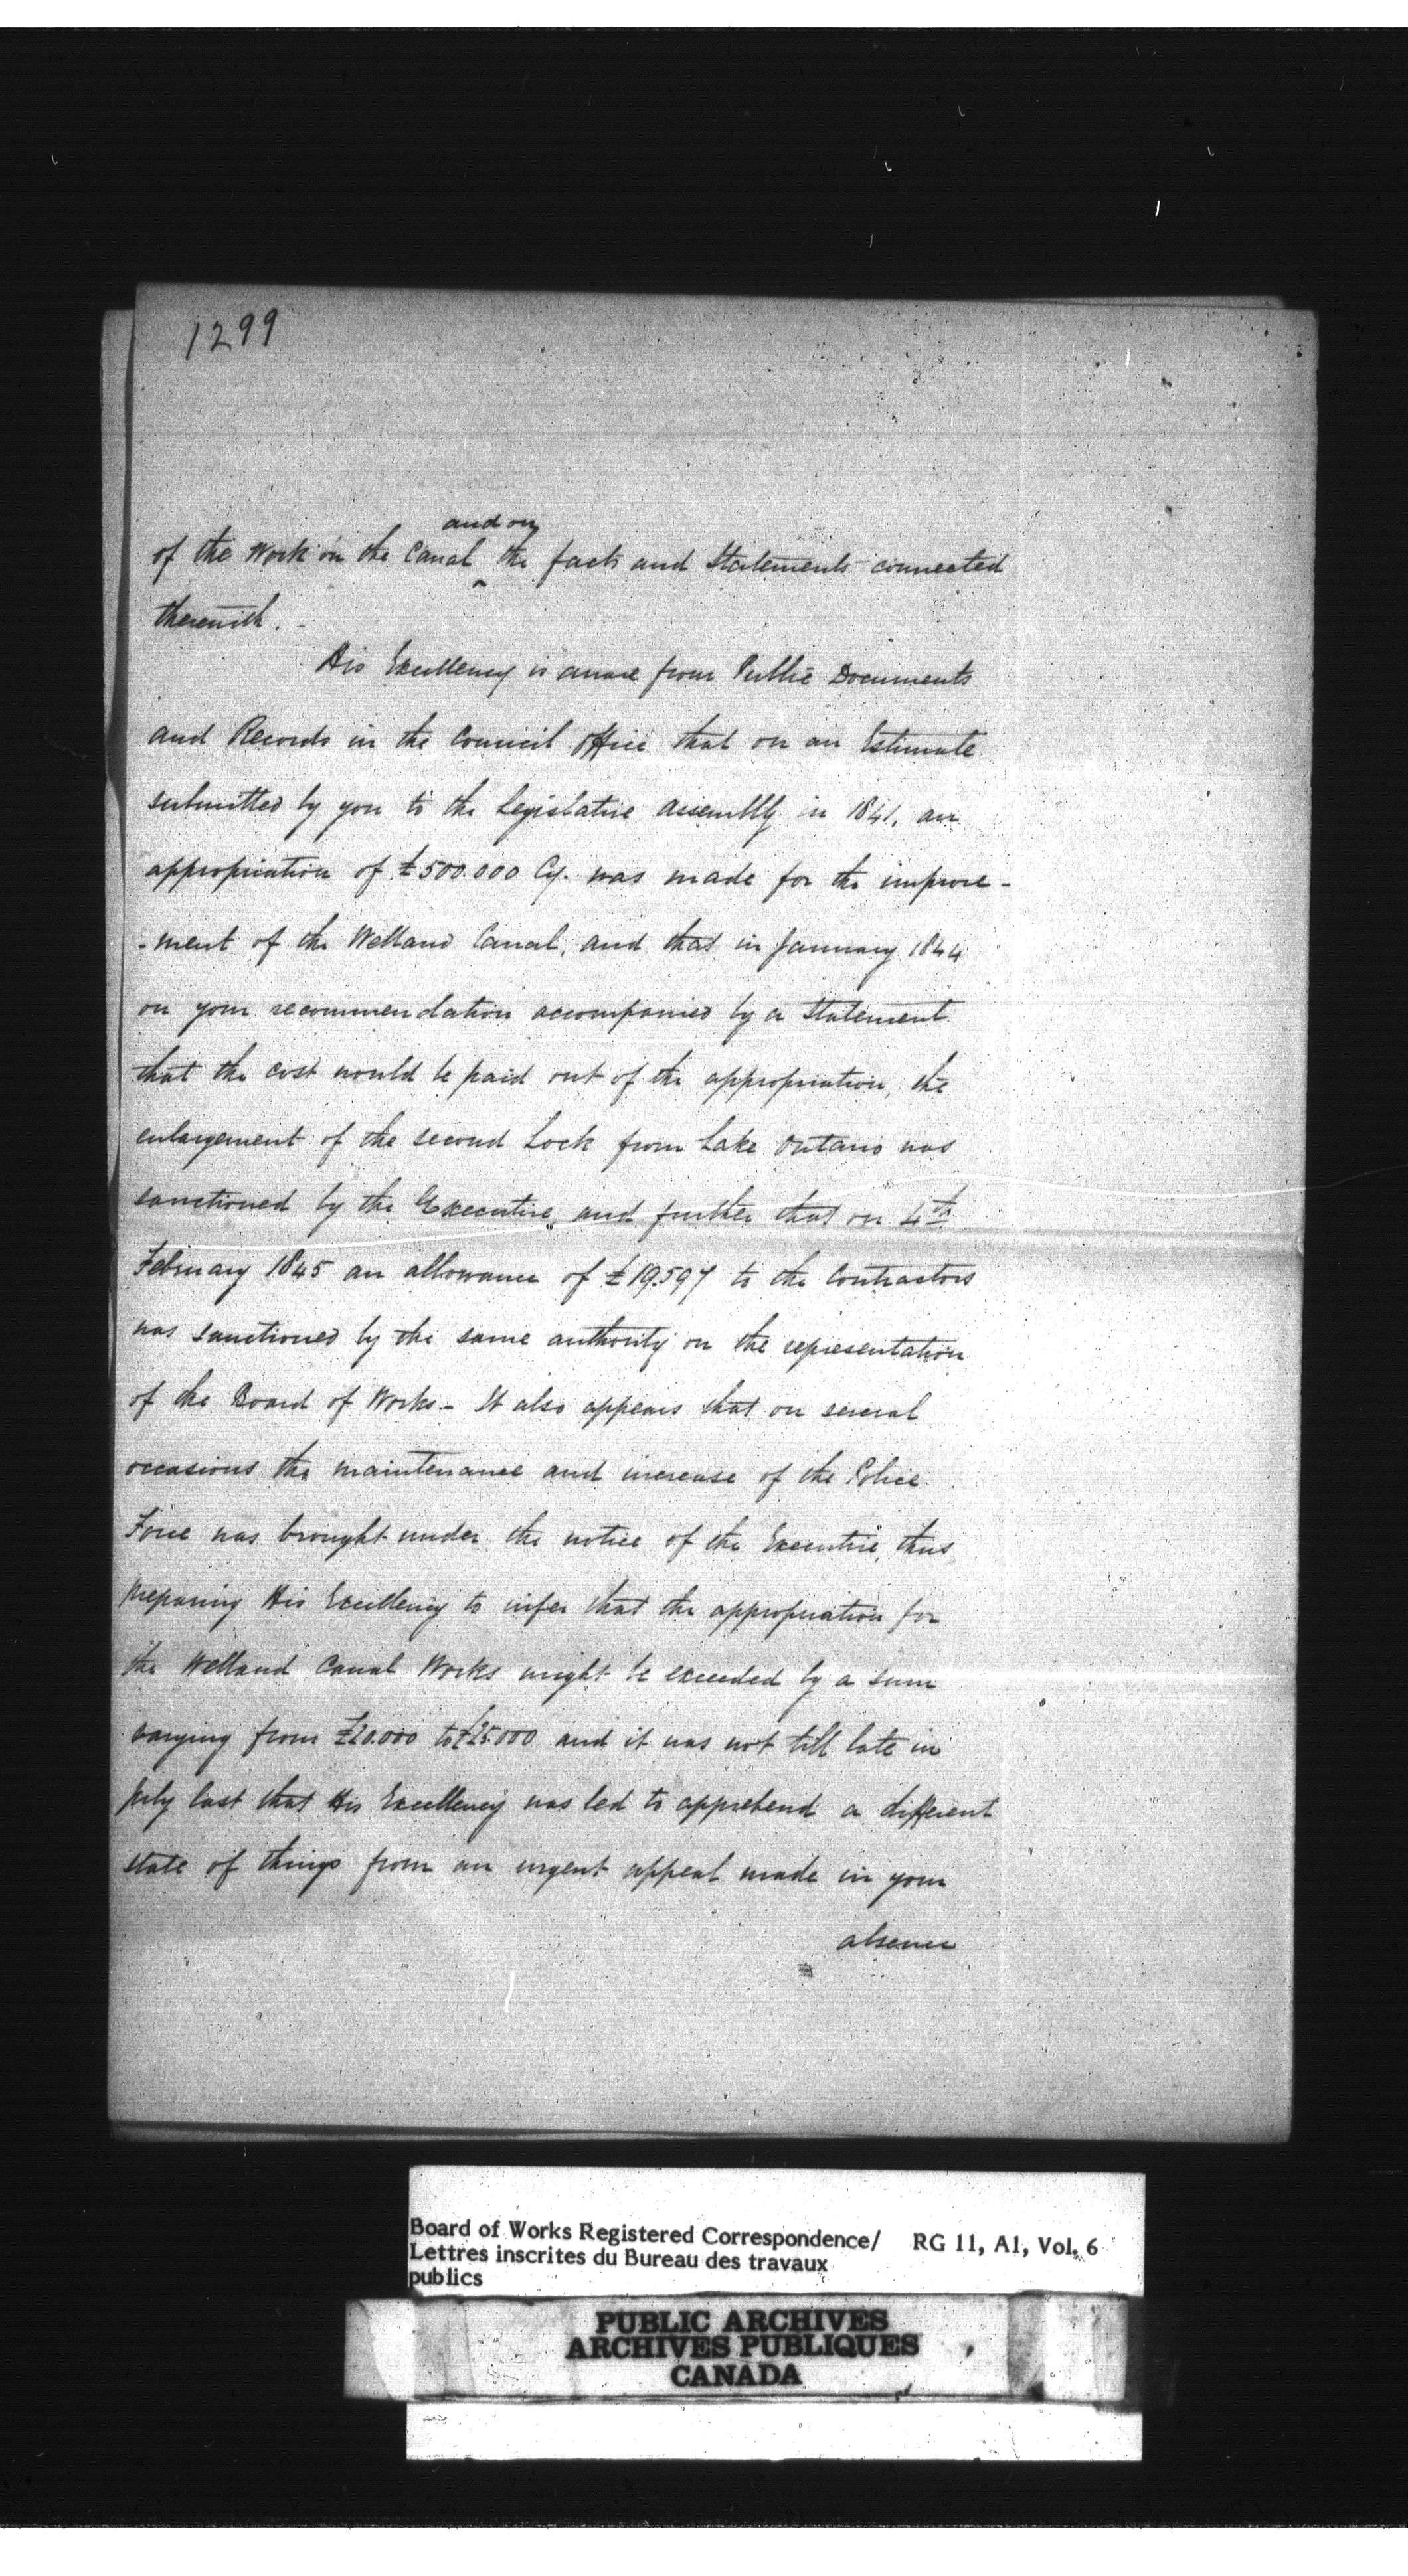 1299
and on
of the Work on the Canal ^ the facts and Statements connected
therewith. -
His Excellency is aware from Public Documents
and Records in the Council Office that on an Estimate
submitted by you to the Legislative Assembly in 1841, an
appropriation of £500.000 Cy. was made for the improve-
-ment of the Welland Canal, and that in January 1844
on your recommendation accompanied by a Statement
that the cost would be paid out of the appropriation, the
enlargement of the second Lock from Lake Ontario was
sanctioned by the Executive, and further that on 4th
February 1845 an allowance of £19.597 to the Contractors
was sanctioned by the same authority on the representation
of the Board of Works - It also appears that on several
occasions the maintenance and increase of the Police
Force was brought under the notice of the Executive, thus
preparing His Excellency to infer that the appropriation for
the Welland Canal Works might be exceeded by a sum
varying from £20.000 to £25.000 and it was not till late in
July last that His Excellency was led to apprehend a different
state of things from an urgent appeal made in your
absence
Board of Works Registered Correspondence/ RG 11, A1, Vol. 6
Lettres inscrites du Bureau des travaux
publics
PUBLIC ARCHIVES
ARCHIVES PUBLIQUES
CANADA